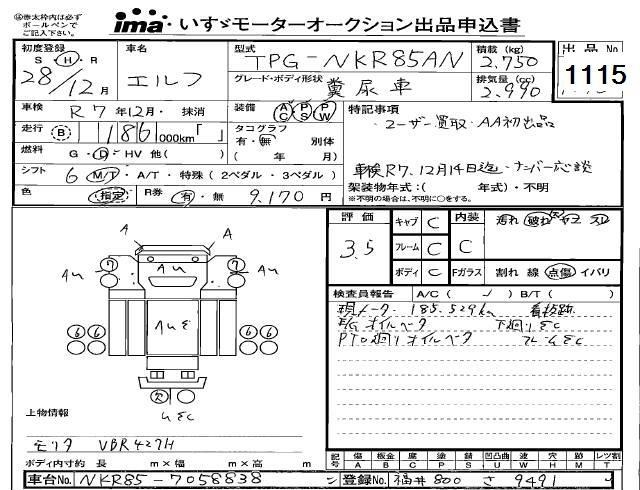 ※赤太枠内は必ず ボールペンで ご記入下さい。
ima・いすゞモーターオークション出品申込書
初度登録 S・H・R 28/12月
車名 エルフ
型式 TPG-NKR85AN
積載(kg) 2.750
出品No 1115
グレード・ボディ形状 糞尿車
排気量(cc) 2.990
車検 R7年12月・抹消
装備 AC PS PW
特記事項
走行 B 186,000km「 」
タコグラフ 有・無 別体 ( 年 月)
・ユーザー買取・AA初出品
燃料 G・D・HV 他( )
車検R7.12月14日迄・ナンバー応談
シフト 6 M/T・A/T・特殊(2ペダル・3ペダル)
架装物年式:( 年式)・不明
※不明の場合は、不明に○をする。
色 (指定) R券 有・無 9.170円
評価 3.5
キャブ C 内装 C
汚れ 破れ ヤニ スレ
フレーム C
ボディ C Fガラス 割れ 線 点傷 イバリ
検査員報告 A/C( / ) B/T( )
現メーク・185.529km 看板跡
E/Gオイルベタ 下廻りEC
PTO廻りオイルベタ
A A
7 7
AU AU AU
6 6 6 6
欠
上物情報
モリタ VBR427H
ボディ内寸約 長 m×幅 m×高 m
記号 傷 板金 腐 塗 錆 凹凸曲 波 穴 無 レツ割
A B C P S U W H M T
車台No. NKR85-7058838
登録No. 福井 800 さ 9491